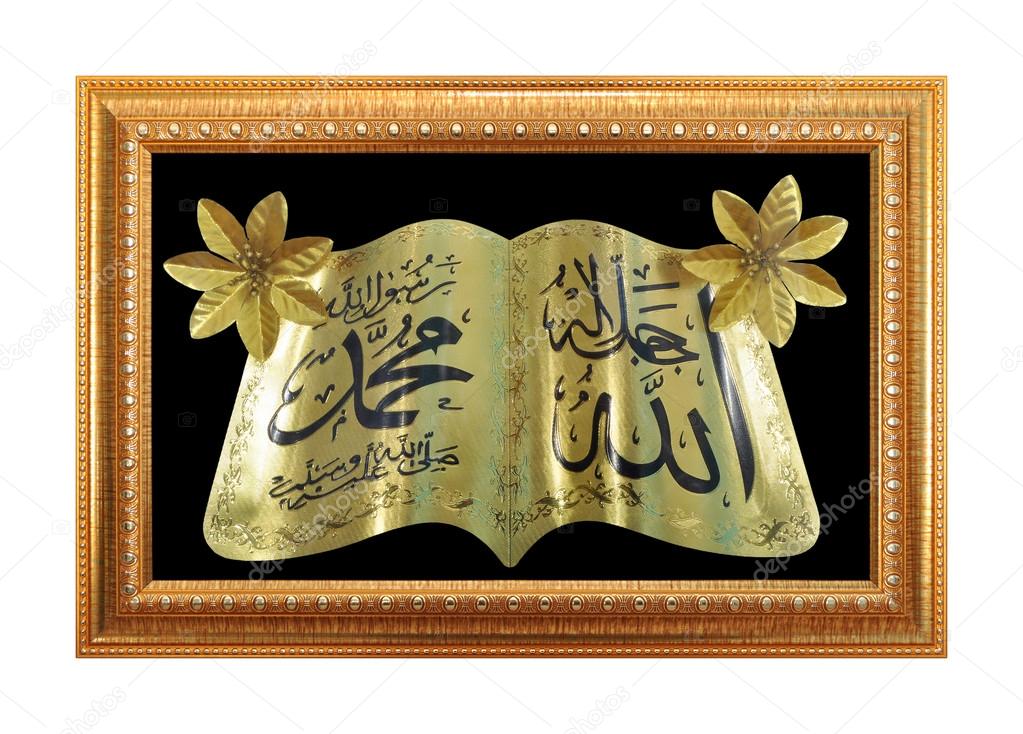 الله
جل جلاله
رسول الله
محمد
صلى الله عليه وسلم
depositphotos